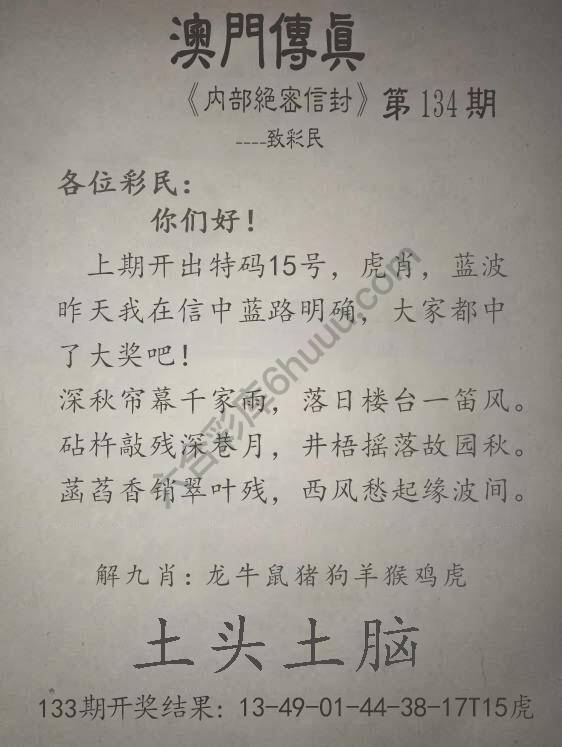 澳門傳真
《内部絕密信封》第134期
----致彩民
各位彩民：
你们好！
上期开出特码15号，虎肖，蓝波
昨天我在信中蓝路明确，大家都中
了大奖吧！
深秋帘幕千家雨，落日楼台一笛风。
砧杵敲残深巷月，井梧摇落故园秋。
菡萏香销翠叶残，西风愁起缘波间。
六合彩库6huuu.com
解九肖：龙牛鼠猪狗羊猴鸡虎
土头土脑
133期开奖结果：13-49-01-44-38-17T15虎